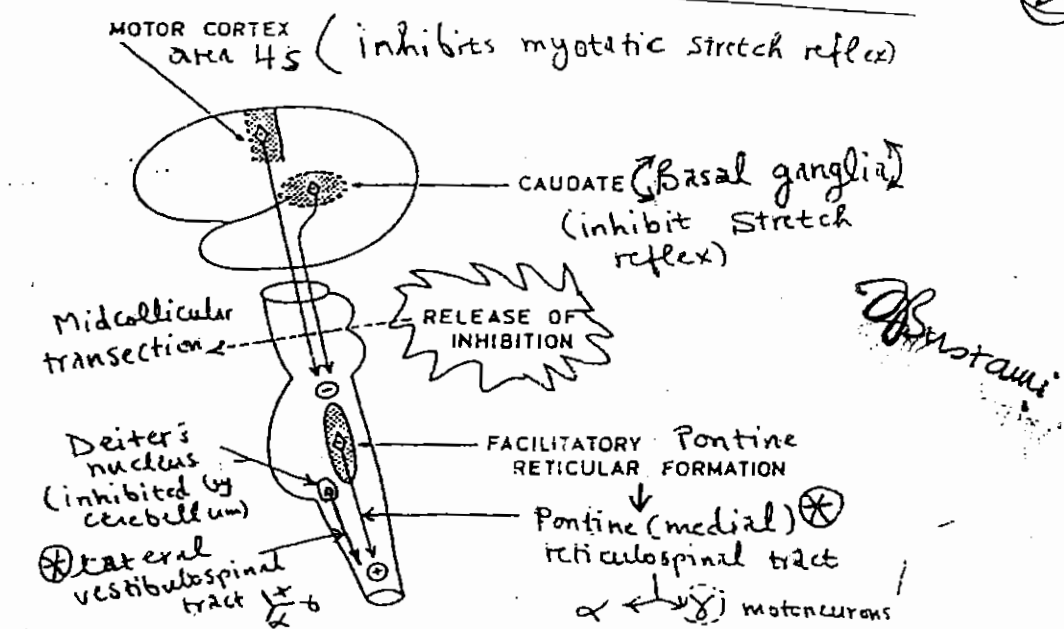 MOTOR CORTEX
area 4s (inhibits myotatic stretch reflex)
CAUDATE (Basal ganglia)
(inhibit stretch
reflex)
Midcollicular
transection
RELEASE OF
INHIBITION
Bustami
⊖
Deiter's
nucleus
(inhibited by
cerebellum)
FACILITATORY Pontine
RETICULAR FORMATION
Pontine (medial) ⊛
reticulospinal tract
α γ motoneurons
⊛ Lateral
vestibulospinal
tract
α
⊕